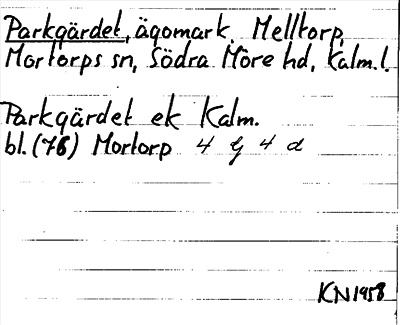 Parkgärdet, ägomark, Melltorp,
Mortorps sn, Södra Möre hd, Kalm.l.
Parkgärdet ek Kalm.
bl. (76) Mortorp 4 G 4 d
KN1958